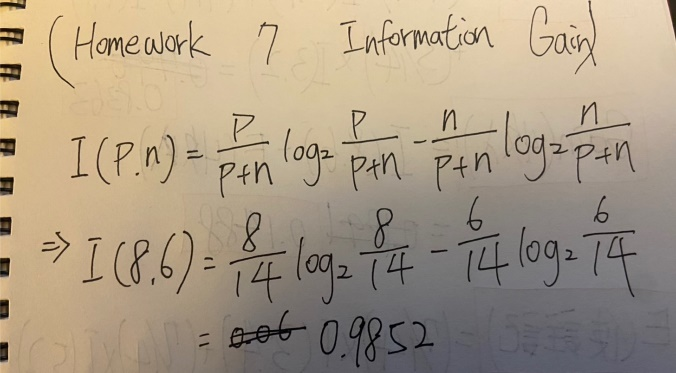 (Homework 7 Information Gain)
I(P.n) = P/P+n log₂ P/P+n - n/P+n log₂ n/P+n
⇒ I(8.6) = 8/14 log₂ 8/14 - 6/14 log₂ 6/14
= ~~0.06~~ 0.9852